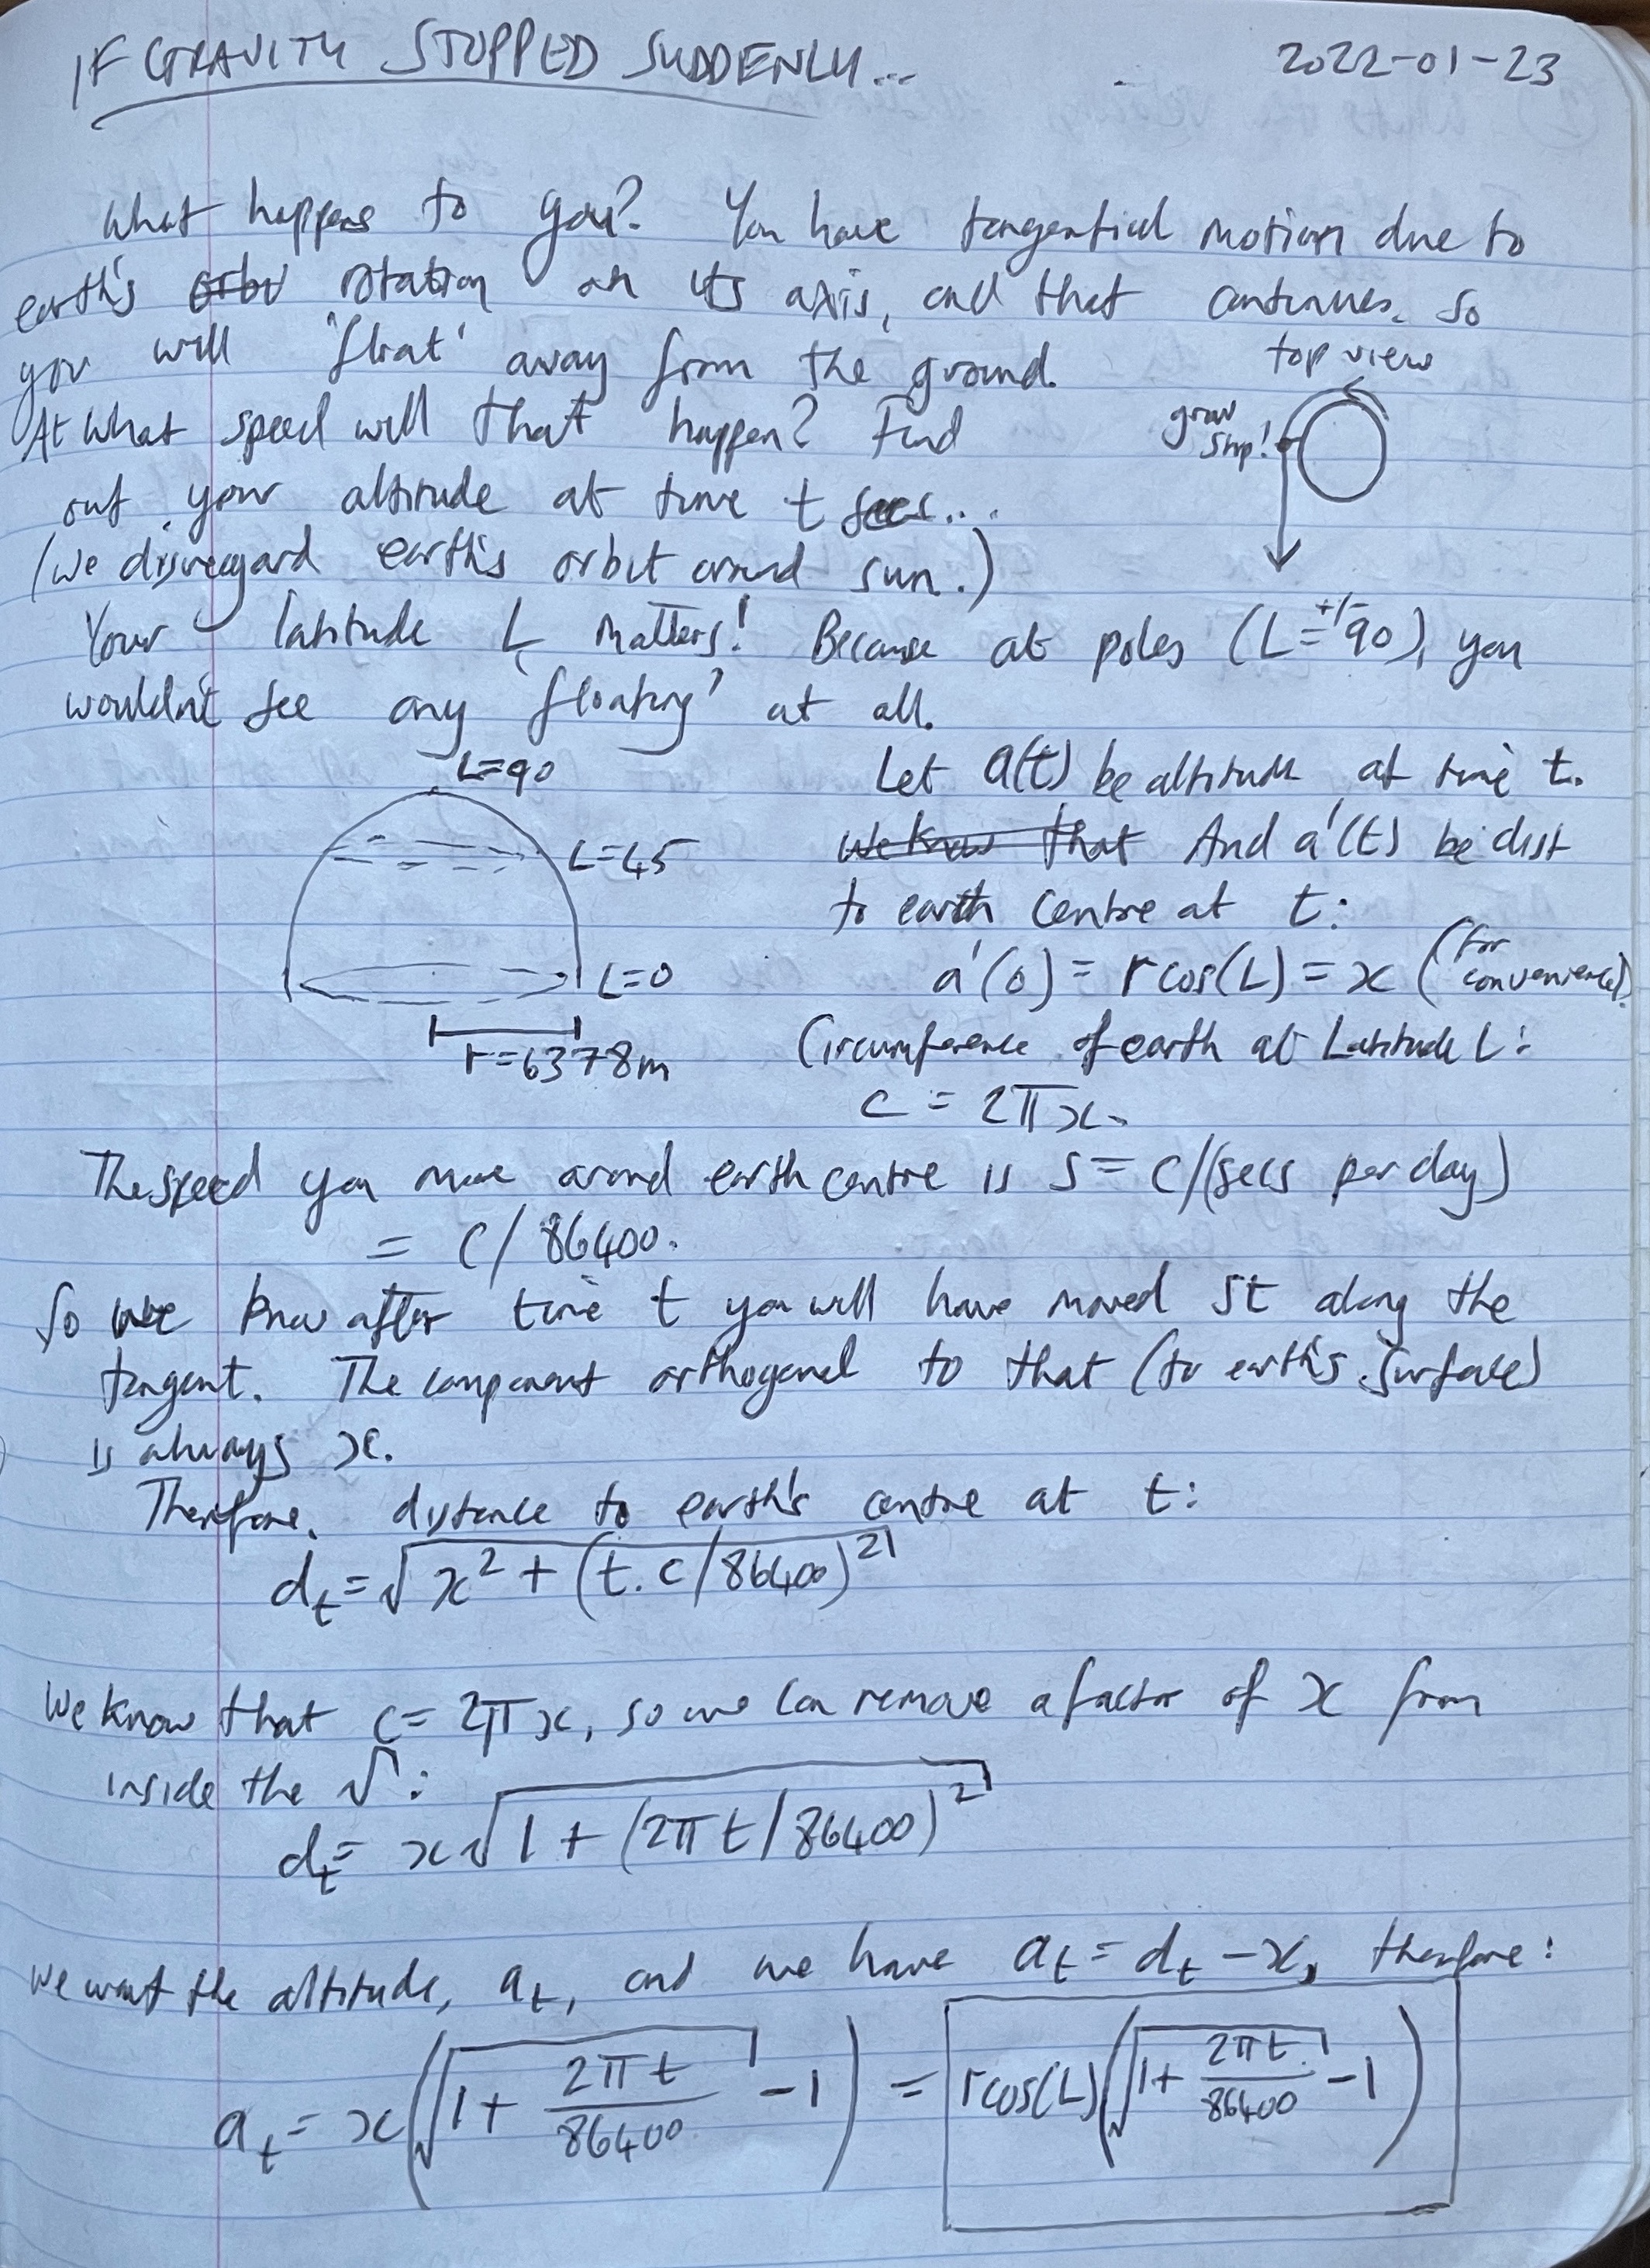 IF GRAVITY STOPPED SUDDENLY...
2022-01-23
What happens to you? You have tangential motion due to
earth's orbi rotation on its axis, and that continues. So
you will 'float' away from the ground.
At what speed will that happen? Find
out your altitude at time t secs...
(we disregard earth's orbit around sun.)
top view
grav
stop!
Your latitude L matters! Because at poles (L=+/-90), you
wouldn't see any 'floating' at all.
L=90
L=45
L=0
r=6378m
Let a(t) be altitude at time t.
We know that And a'(t) be dist
to earth centre at t:
a'(0) = r cos(L) = x (for
convenience).
Circumference of earth at Latitude L:
c = 2πx.
The speed you move around earth centre is s = c/(secs per day)
= c/86400.
So we know after time t you will have moved st along the
tangent. The component orthogonal to that (to earth's surface)
is always x.
Therefore, distance to earth's centre at t:
d_t = √(x² + (t.c/86400)²)
We know that c = 2πx, so we can remove a factor of x from
inside the √:
d_t = x√(1 + (2πt/86400)²)
We want the altitude, a_t, and we have a_t = d_t - x, therefore:
a_t = x(√(1 + 2πt/86400) - 1) = r cos(L)(√(1 + 2πt/86400) - 1)